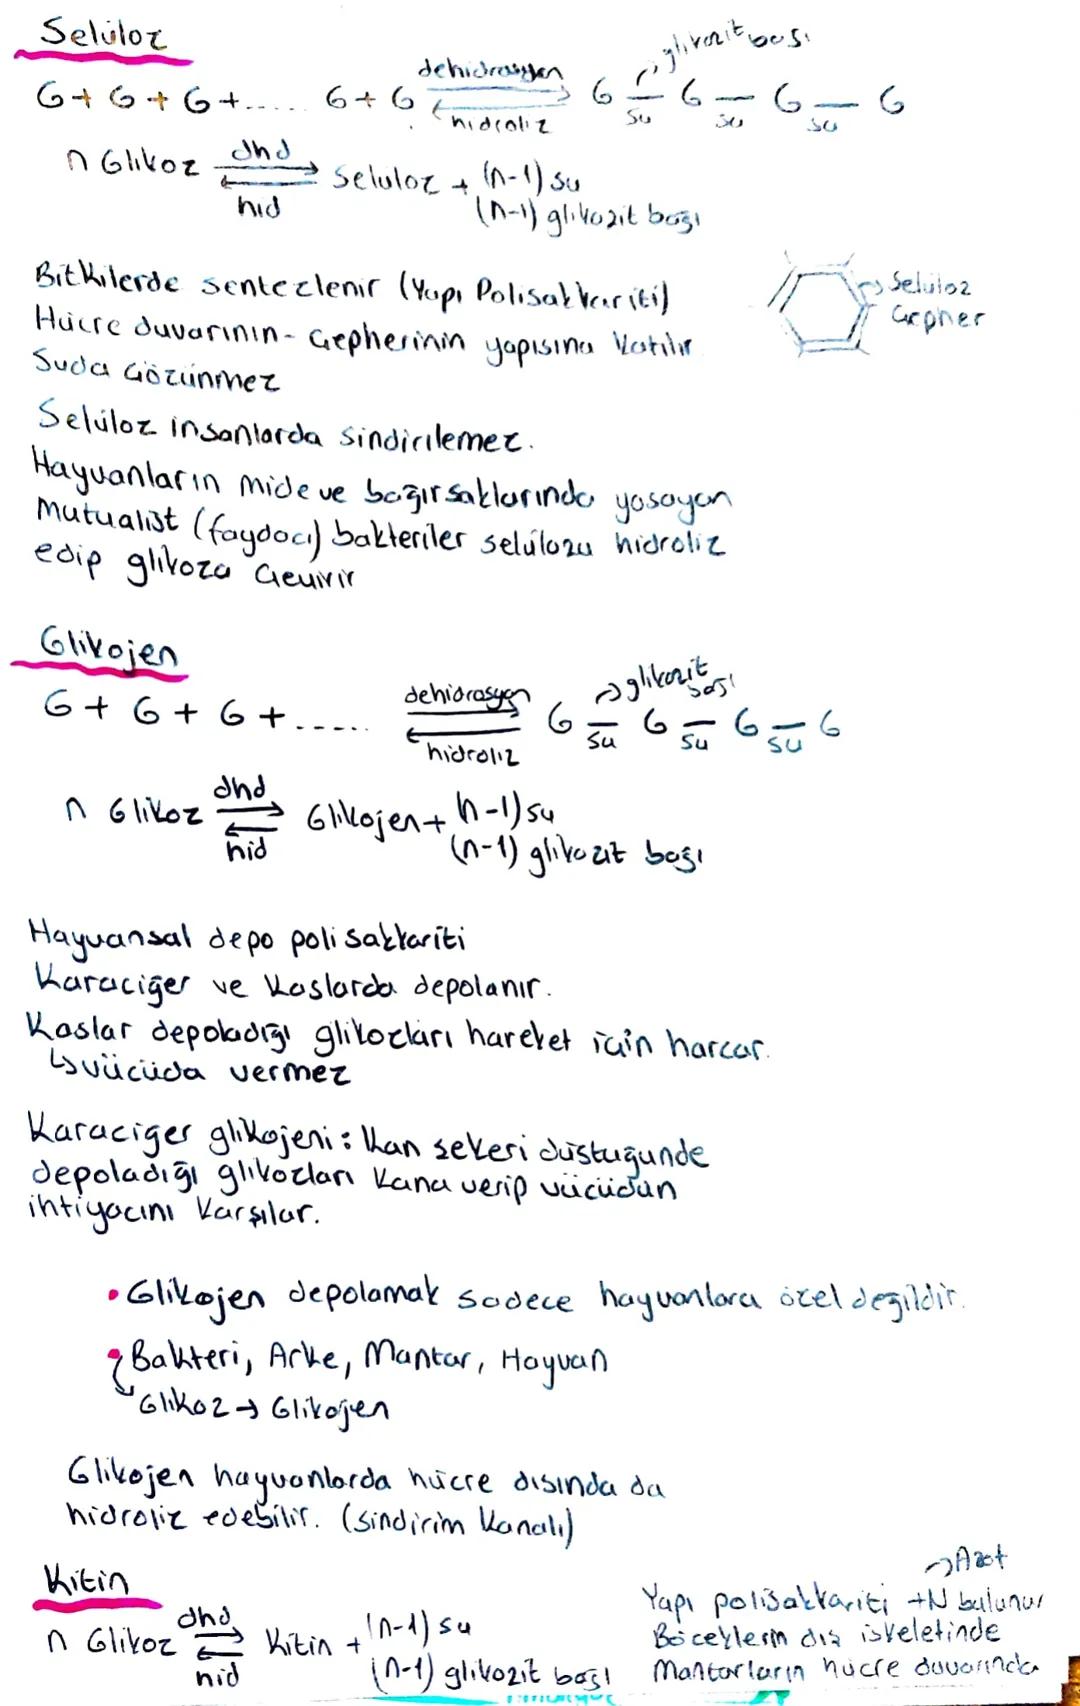 Selüloz
glikozit bağı
G + G + G + ..... G + G dehidrasyon hidroliz G - G - G - G
su su su
n Glikoz dhd hid Selüloz + (n-1) su
(n-1) glikozit bağı
Bitkilerde sentezlenir (Yapı Polisakkariti)
Hücre duvarının - Çepherinin yapısına katılır
Suda Çözünmez
Selüloz
Çepher
Selüloz insanlarda sindirilemez.
Hayvanların mide ve bağırsaklarında yaşayan
Mutualist (faydacı) bakteriler selülozu hidroliz
edip glikoza Çevirir
Glikojen
glikozit bağı
G + G + G + ..... dehidrasyon hidroliz G - G - G - G
su su su
n Glikoz dhd hid Glikojen + n-1) su
(n-1) glikozit bağı
Hayvansal depo polisakkariti
Karaciğer ve Kaslarda depolanır.
Kaslar depoladığı glikozları hareket için harcar.
↳ vücüda vermez
Karaciger glikojeni : Kan şekeri düştüğünde
depoladığı glikozları Kana verip vücüdun
ihtiyacını Karşılar.
• Glikojen depolamak sadece hayvanlara özel değildir.
• Bakteri, Arke, Mantar, Hayvan
Glikoz → Glikojen
Glikojen hayvanlarda hücre dışında da
hidroliz edebilir. (Sindirim Kanalı)
Kitin
n Glikoz dhd hid Kitin + (n-1) su
(n-1) glikozit bağı
→ Azot
Yapı polisakkariti +N bulunur
Böceklerin dış iskeletinde
Mantarların hücre duvarında